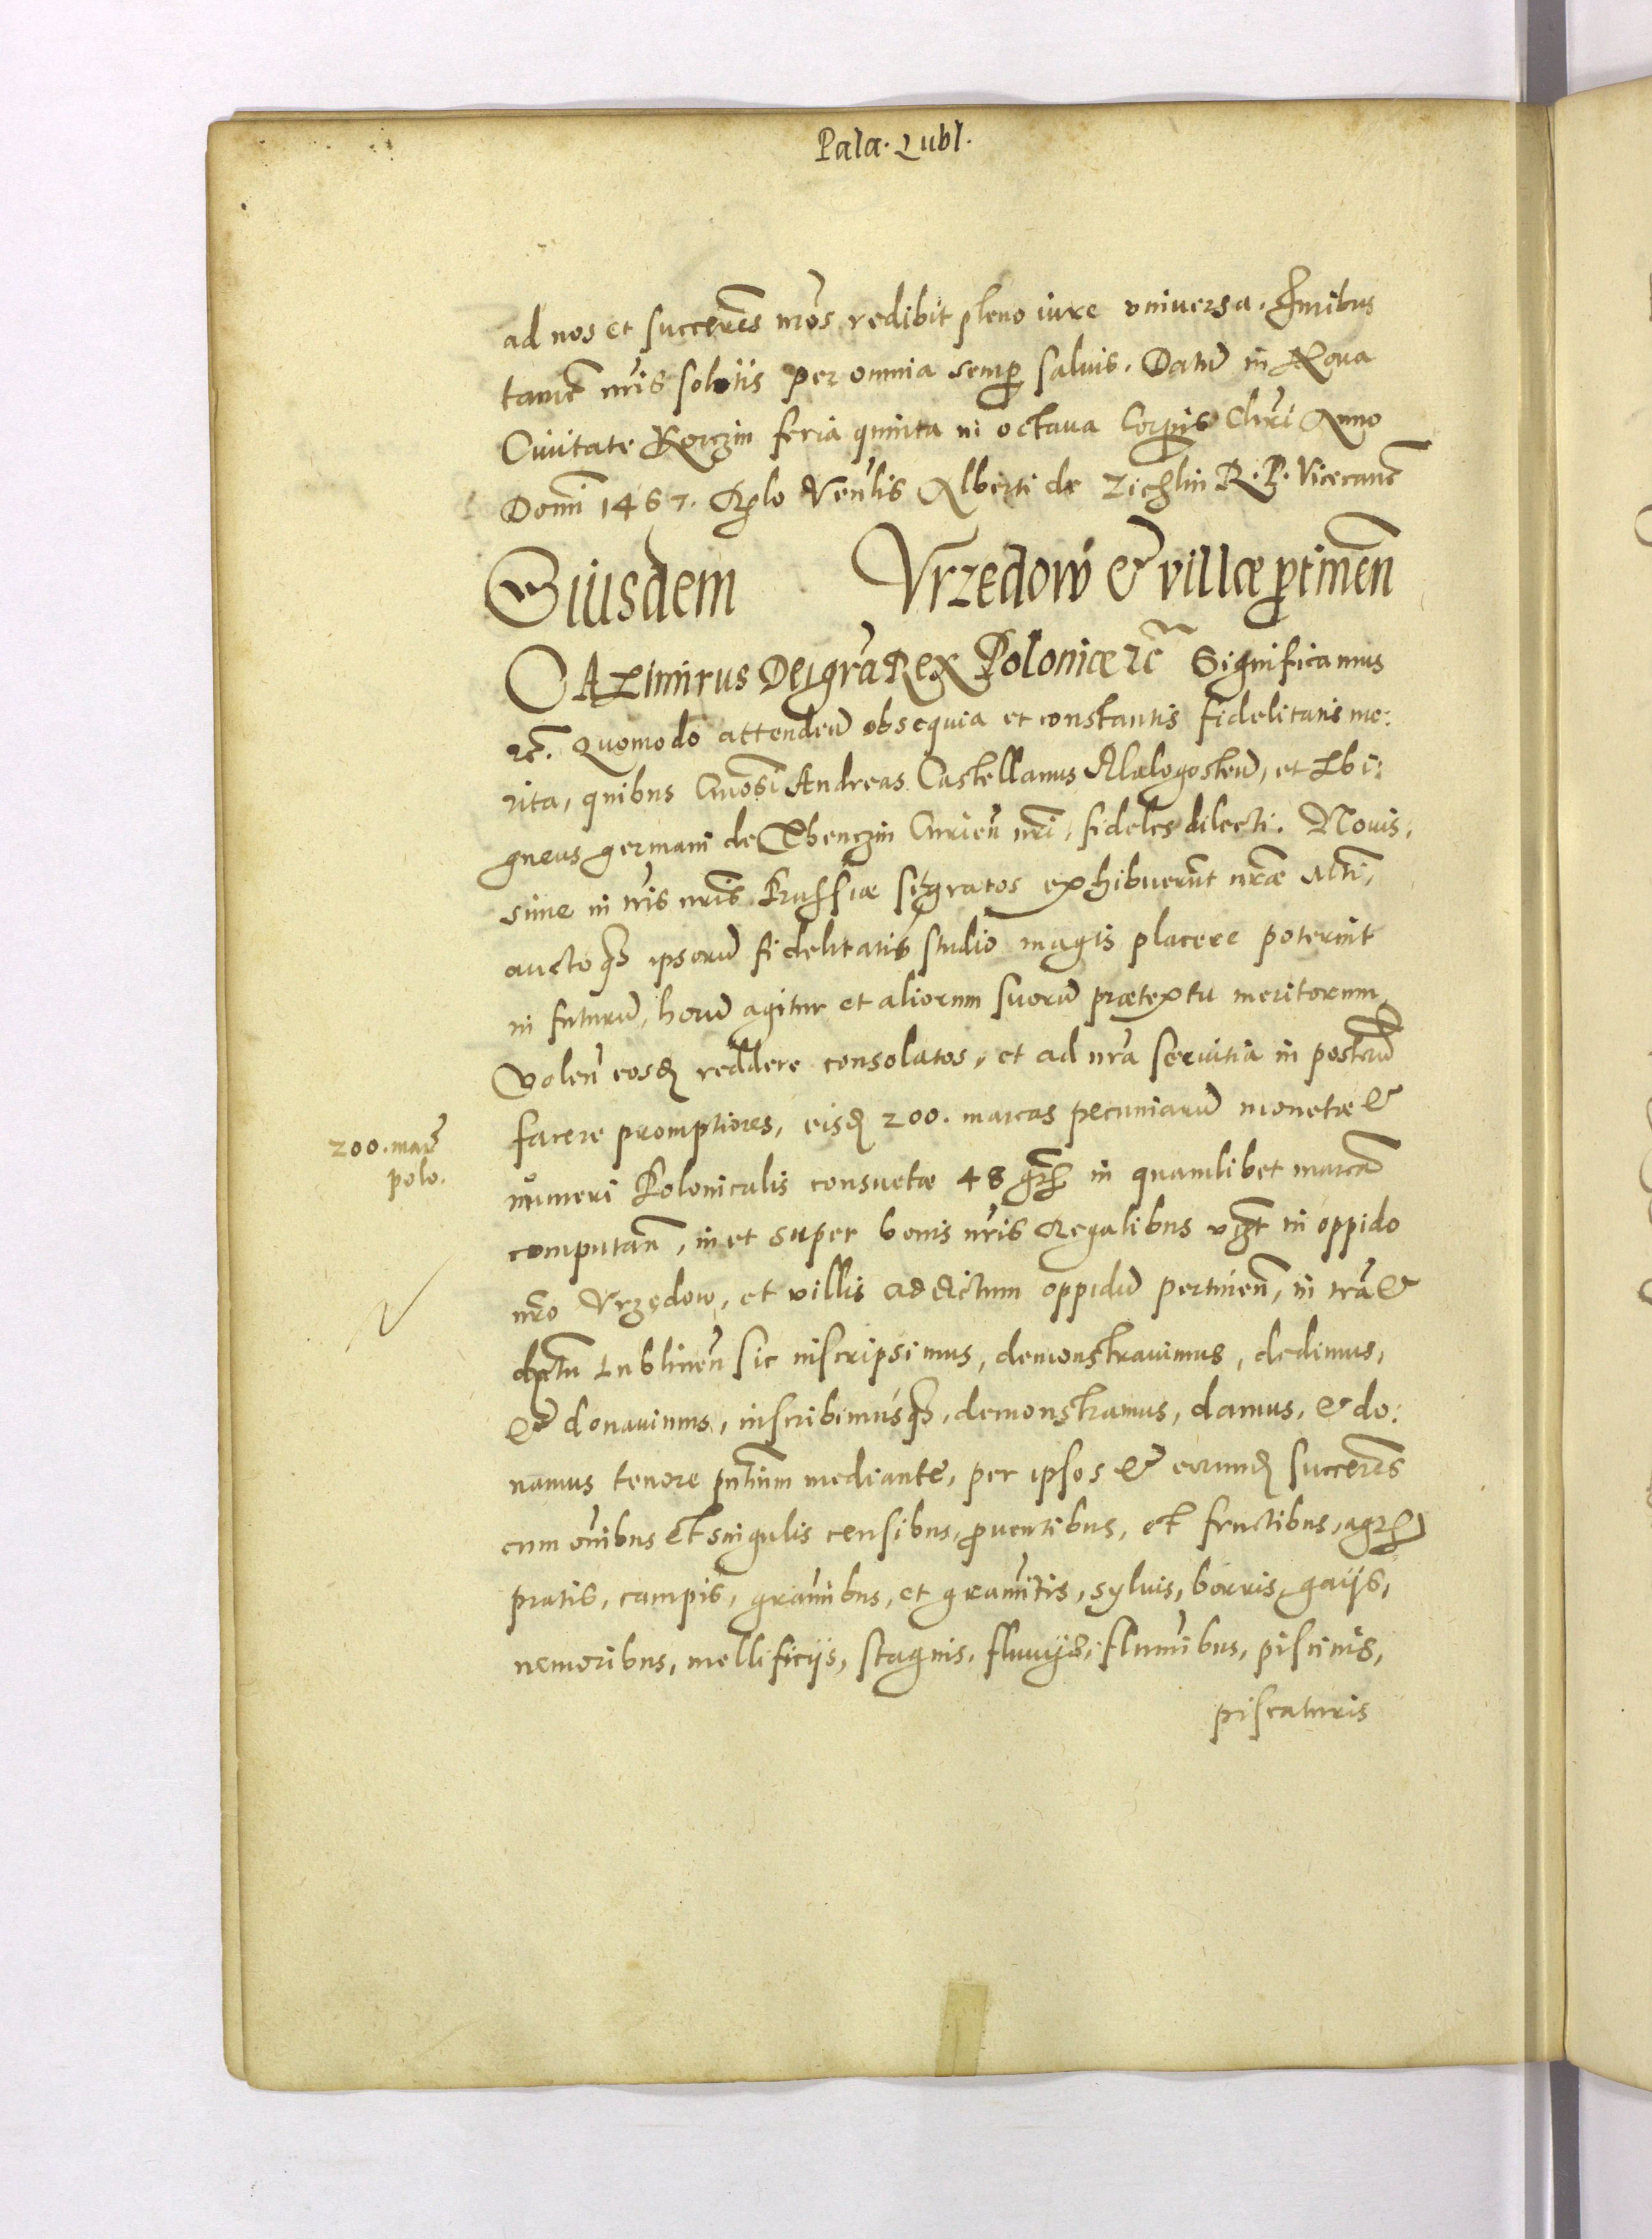 Pala. Lubl.
ad nos et successores nros redibit pleno iure vniuersa. Juribus
tamẽ nris solitis per omnia semp salvis. Datũ in Noua
Ciuitate Korczin feria quinta in octava Corpis Chri Anno
Domi 1467. Rplo Venlis Alberti de Zichlin R. P. Vicecanc
Eiusdem Vrzedow & villæ ptinen
CAzimirus Dei gra Rex Poloniæ zc Significamus
zc. Quomodo attenden obsequia et constantis fidelitatis me:
rita, quibus Gnosi Andreas Castellanus Malogosten, et Sbi:
gneus germani de Thenczin Curien nri, fideles dilecti. Nouis:
sime in tris nris Russiæ se gratos exhibuerunt nræ Mti,
auctoq3 ipsorũ fidelitatis studio magis placere poterint
in futurũ, horũ agitur et aliorum suorũ prætextu meritorum,
Volen eosd reddere consolatos, et ad nra seruitia in posterũ
facere promptiores, eisd 200. marcas pecuniarũ monetæ &
200. marc
polo.
numeri Polonicalis consuetæ 48 gr in quamlibet marcã
computan, in et super bonis nris Regalibus vzt in oppido
nro Vrzędow, et villis ad dictum oppidũ pertinen, in tra &
dhctu Lublinen sic inscripsimus, demonstrauimus, dedimus,
& donauimus, inscribimusq3, demonstramus, damus, & do:
namus tenore pntium mediante, per ipsos & eorund successores
cum oibus et singulis censibus, puentibus, et fructibus, agris
pratis, campis, graminibus, et gramitis, syluis, borris, gaijs,
nemoribus, mellificijs, stagnis, fluuijs, fluminibus, piscinis,
piscaturis